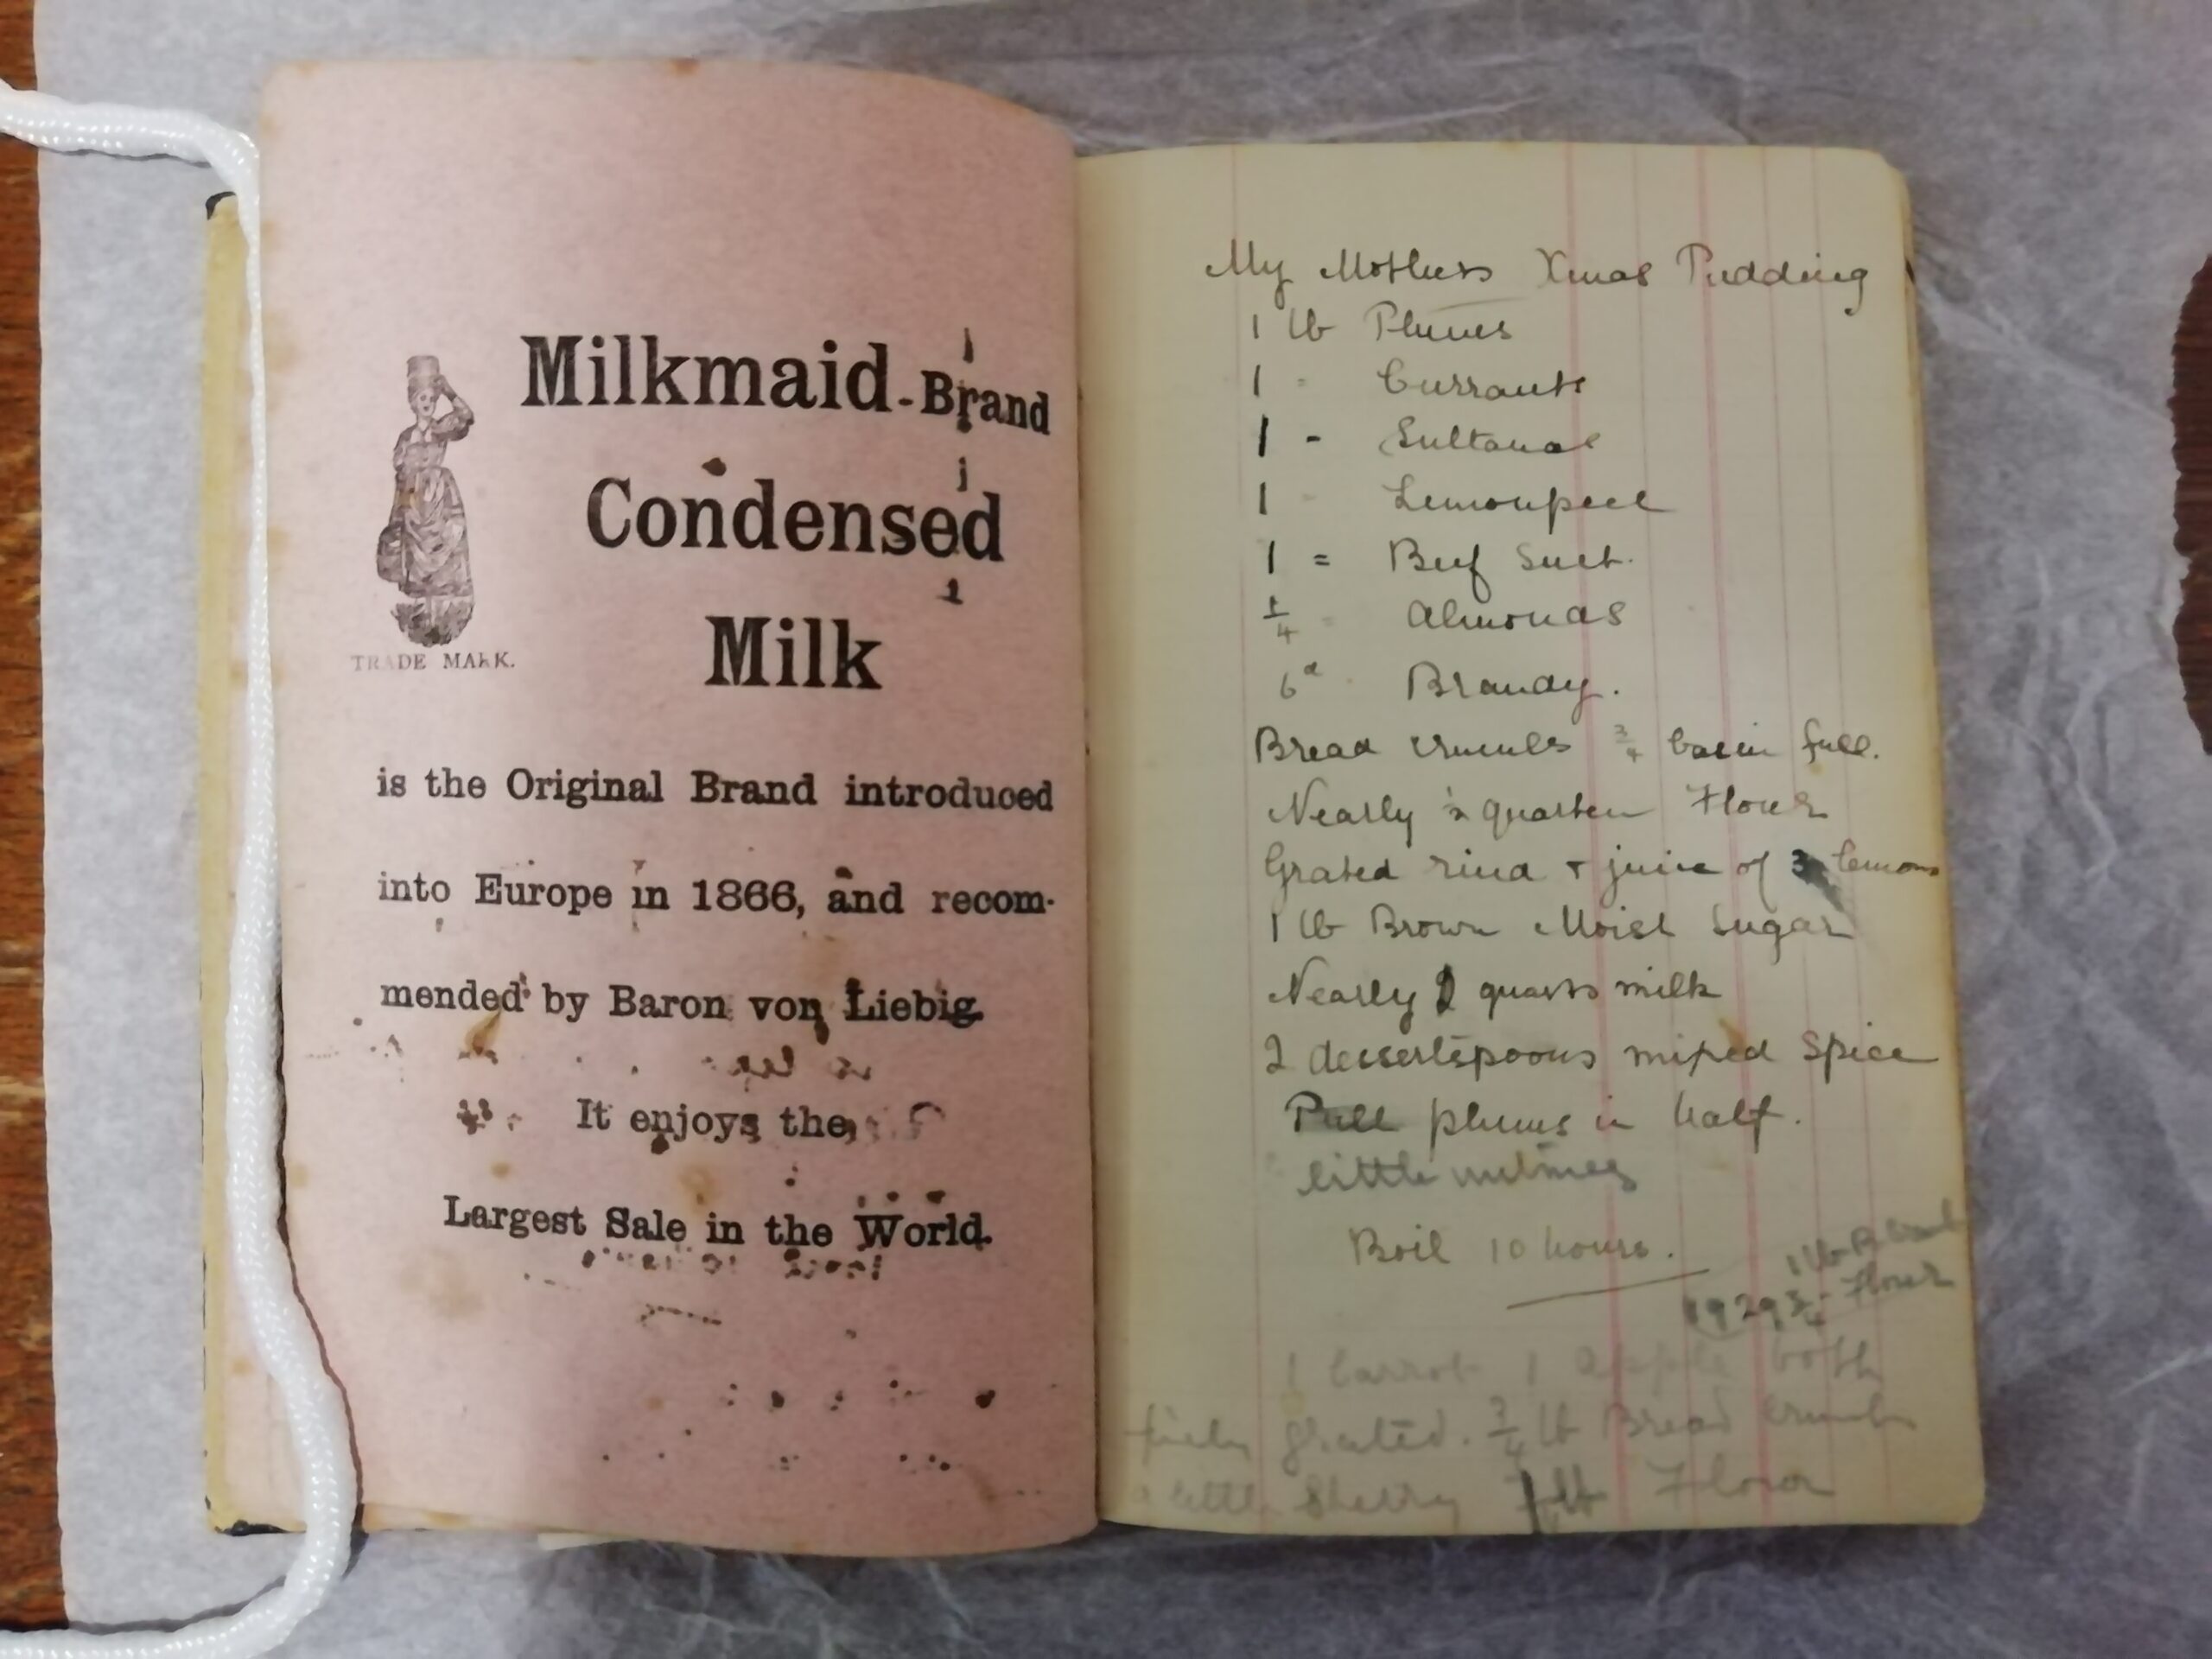 Milkmaid-Brand
Condensed
Milk
TRADE MARK.
is the Original Brand introduced
into Europe in 1866, and recom-
mended by Baron von Liebig.
It enjoys the
Largest Sale in the World.
My Mothers Xmas Pudding
1 lb Plums
1 " Currants
1 - Sultanas
1 " Lemonpeel
1 = Beef Suet.
1/4 " Almonds
6d Brandy.
Bread crumbs 3/4 basin full.
Nearly 1/2 quartern Flour
Grated rind + juice of 3 lemons
1 lb Brown Moist Sugar
Nearly 2 quarts milk
2 dessertspoons mixed Spice
Pull plums in half.
little nutmeg
Boil 10 hours.
1 lb
1929 Flour
1 Carrot 1 apple both
finely grated. 3/4 lb Bread crumbs
a little Sherry lb Flour